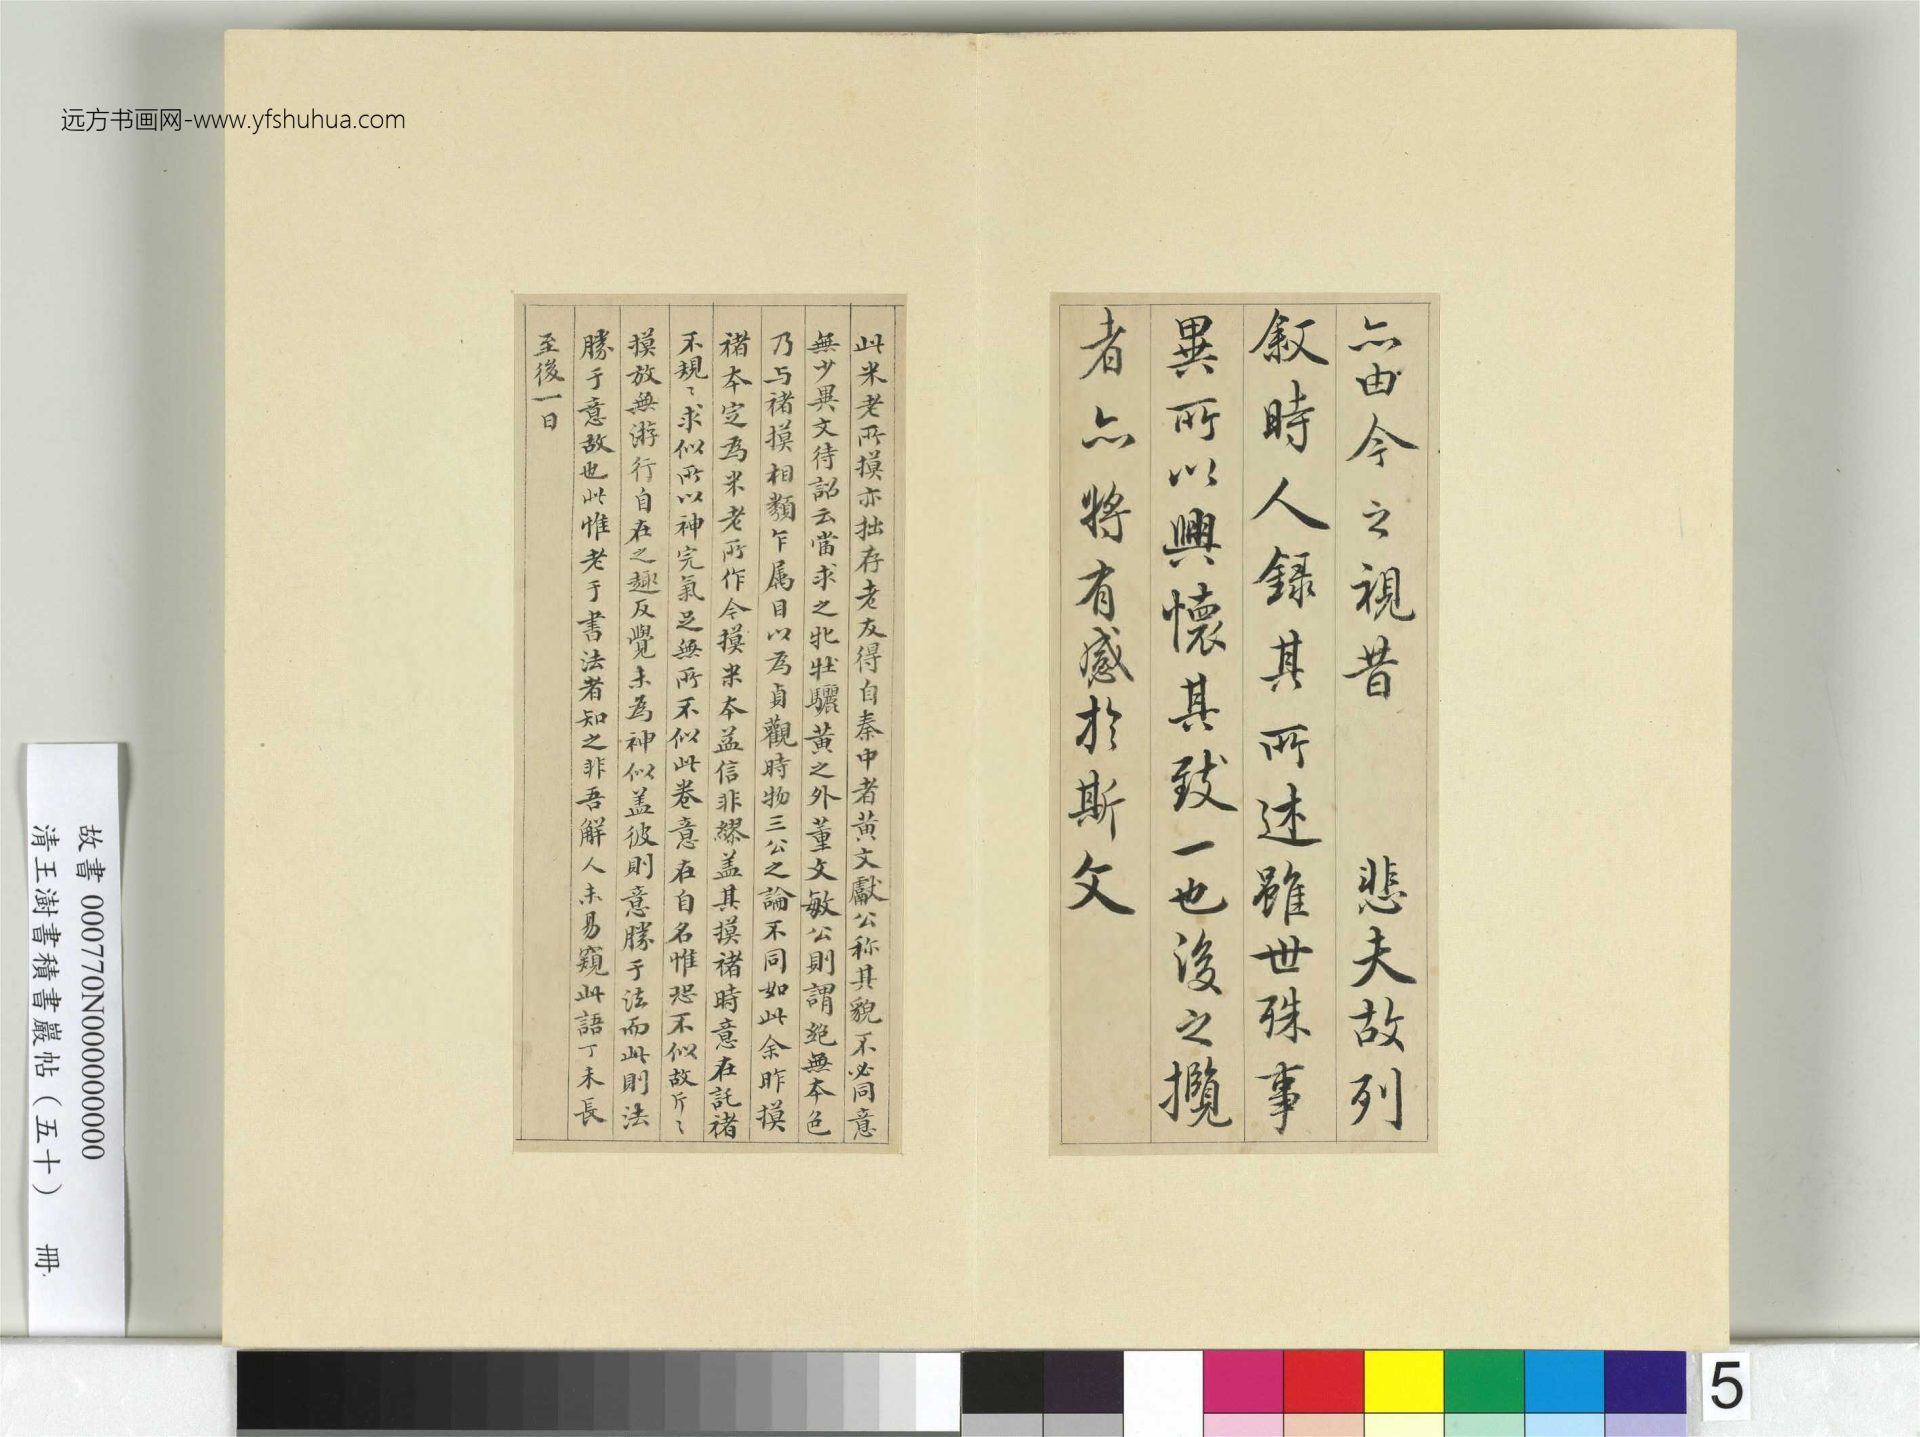 远方书画网-www.yfshuhua.com
亦由今之視昔 悲夫故列
敘時人錄其所述雖世殊事
異所以興懷其致一也後之攬
者亦將有感於斯文
此米老所摸亦拙存老友得自秦中者黃文獻公称其貌不必同意
無少異文待詔云當求之牝牡驪黃之外董文敏公則謂絕無本色
乃与褚摸相類乍属目以為貞觀時物三公之論不同如此余昨摸
褚本定為米老所作今摸米本益信非繆盖其摸褚時意在託褚
不規〻求似所以神完氣足無所不似此卷意在自名惟恐不似故斤〻
摸放無游行自在之趣反覺未為神似盖彼則意勝于法而此則法
勝于意故也此惟老于書法者知之非吾解人未易窺此語丁未長
至後一日
故書 000770N000000000
清王澍書積書巖帖(五十) 冊
5